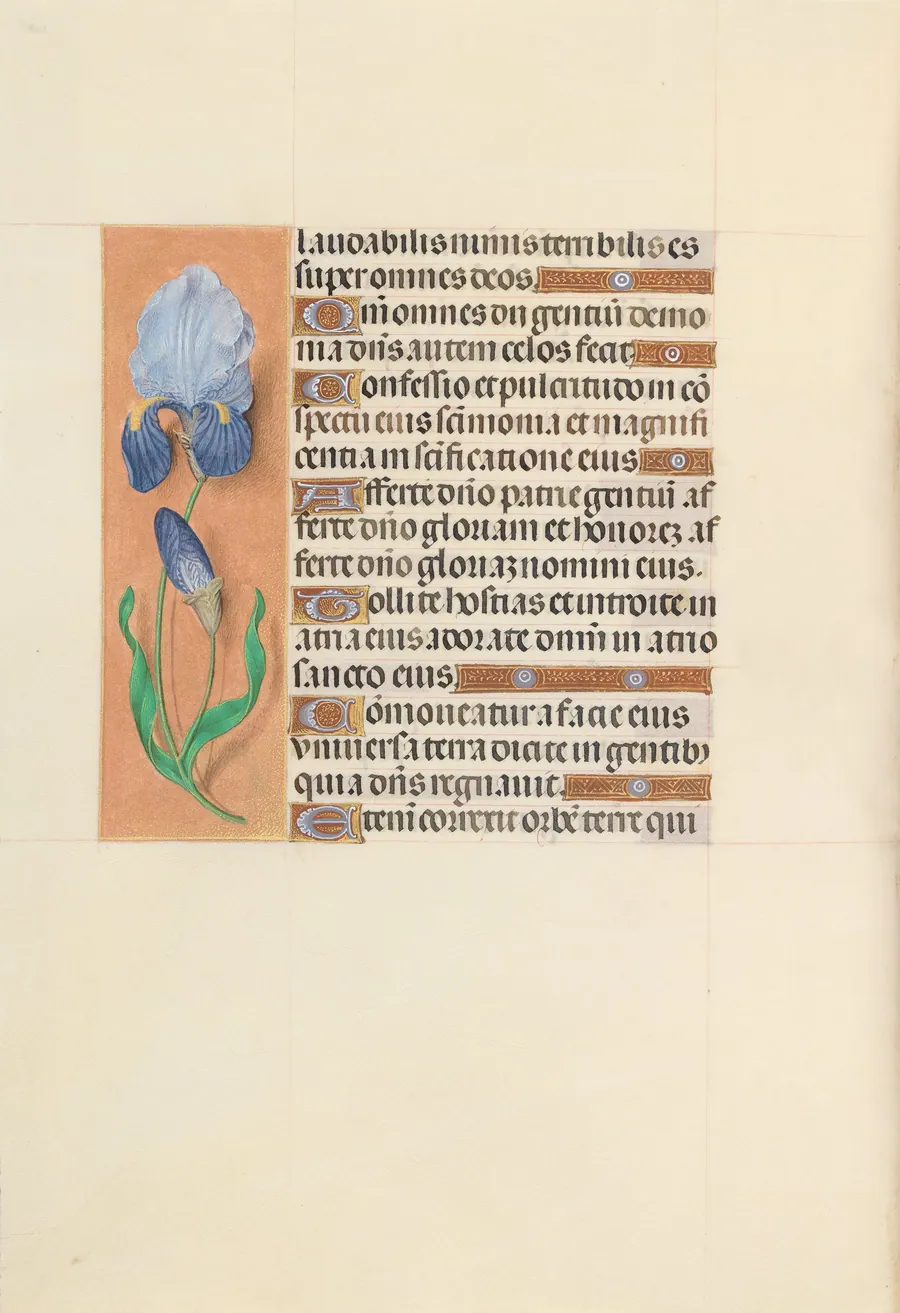 laudabilis nimis terribilis es
super omnes deos.
Qm̄ omnes dii gentiū demo
nia dn̄s autem celos fecit.
Confessio et pulcritudo in cō
spectu eius sc̄imonia et magnifi
centia in sc̄ificatione eius
Afferte dn̄o patrie gentiū af
ferte dn̄o gloriam et honoreꝫ af
ferte dn̄o gloriaꝫ nomini eius.
Tollite hostias et introite in
atria eius adorate dnm̄ in atrio
sancto eius.
Cōmoueatur a facie eius
vniuersa terra dicite in gentibꝰ
quia dn̄s regnauit.
Eteni̅ correxit orbē terre qui